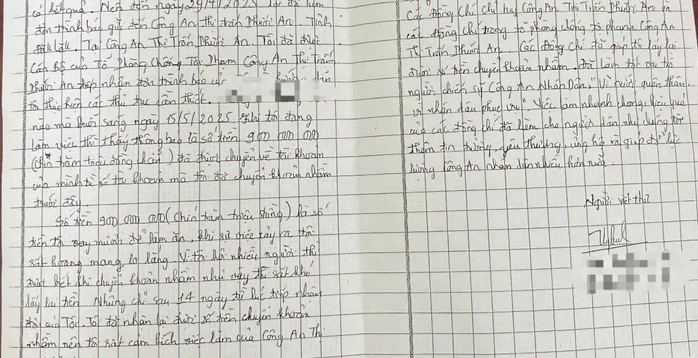 có kết quả. Nên đến ngày 29/4/2025 Tôi đã làm
đơn trình báo gửi đến Công An Thị trấn Phước An. Tỉnh
Đắk Lắk. Tại Công An Thị Trấn Phước An. Tôi đã được
Cán Bộ của Tổ Phòng Chống Tội Phạm Công An Thị Trấn
Phước An tiếp nhận đơn trình báo của
tôi thực hiện các thủ tục cần thiết.
nào mà buổi sáng ngày 15/5/2025 khi tôi đang
làm việc thì Thấy thông báo là số tiền 900 000 000
(chín trăm triệu đồng chẵn) đã được chuyển về tài khoản
của mình từ số tài khoản mà tôi đã chuyển khoản nhầm
trước đây.
Số tiền 900 000 000 (chín trăm triệu đồng) là số
tiền tôi vay mượn để làm ăn, khi sự việc xảy ra tôi
rất hoang mang, lo lắng. Vì tôi hỏi nhiều người thì
được biết khi chuyển khoản nhầm như vậy thì rất khó
lấy lại tiền. Nhưng chỉ sau 14 ngày từ lúc tiếp nhận
đơn của Tôi. Tôi đã nhận lại được số tiền chuyển khoản
nhầm nên tôi rất cảm kích việc làm của Công An Thị
Các đồng chí chỉ huy Công An Thị Trấn Phước An và
các đồng chí trong tổ phòng chống tội phạm Công An
Thị Trấn Phước An. Các đồng chí đã giúp tôi lấy lại
được số tiền chuyển khoản nhầm, đã làm tốt vai trò
người chiến sỹ Công An Nhân Dân, "Vì nước quên thân,
vì nhân dân phục vụ" Việc làm nhanh chóng, hiệu quả
của các đồng chí đã làm cho người dân như chúng tôi
thêm tin tưởng, yêu thương, ủng hộ và giúp đỡ lực
lượng Công An nhân dân nhiều hơn nữa.
Người viết thư